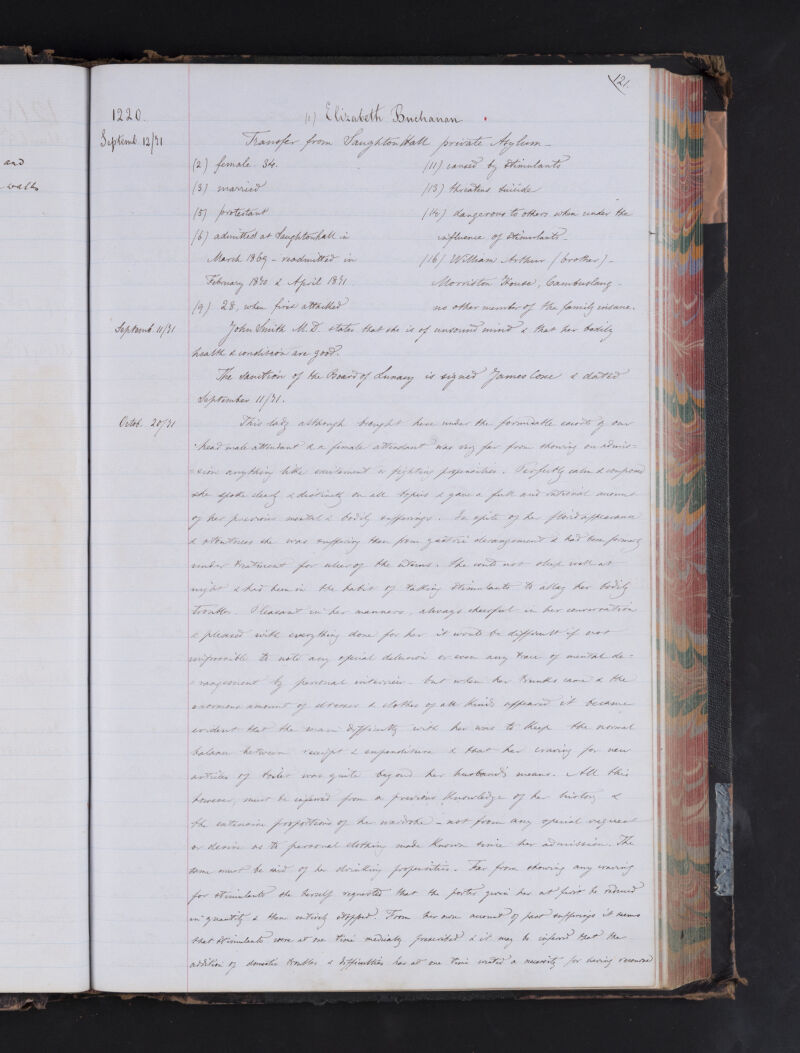 121.
and
walks
1220. (1) Elizabeth Buchanan
Septemb. 12/71 Transfer from Saughton Hall private Asylum-
(2) female 34.
(3) married
(5) protestant
(6) admitted at Saughtonhall in
March 1869 - readmitted in
February 1870 & April 1871
(9) 28, when first attacked
(11) caused by stimulants
(13) threatens suicide
(14) dangerous to others when under the
influence of stimulants-
(16) William Arthur (brother)-
Morriston House, Cambuslang-
no other member of the family insane.
Septemb. 11/71 John Smith M.D. states that she is of unsound mind & that her bodily
health & condition are good.
The sanction of the Board of Lunacy is signed James Coxe & dated
September 11/71.
Octob. 20/71 This lady although brought here under the formidable escort of our
head male attendant & a female attendant was very far from showing on admis-
sion anything like excitement or fighting propensities. Perfectly calm & composed
she spoke clearly & distinctly on all topics & gave a full and rational account
of her previous mental & bodily sufferings. In spite of her florid appearance
& stoutness she was suffering then from gastric derangement & had been formerly
under treatment for ulcer of the uterus. She could not sleep well at
night & had been in the habit of taking stimulants to allay her bodily
troubles. Pleasant in her manners, always cheerful in her conversation
& pleased with everything done for her it would be difficult if not
impossible to note any special delusion or even any trace of mental de-
rangement by personal interview- but when her trunks came & the
enormous amount of dresses & clothes of all kinds appeared it became
evident that the main difficulty with her was to keep the normal
balance between receipt & expenditure & that her craving for new
articles of toilet was quite beyond her husband's means. All this
however, must be inferred from a previous knowledge of her history &
the extensive proportions of her wardrobe - not from any special request
or desire as to personal clothing made known since her admission. The
same must be said of her drinking propensities. Far from showing any craving
for stimulants she herself requested that the porter given her at first be reduced
in quantity & then entirely stopped. From her own account of past sufferings it seems
that stimulants were at one time medically prescribed & it may be inferred that the
addition of domestic troubles & difficulties has at one time created a necessity for having recourse